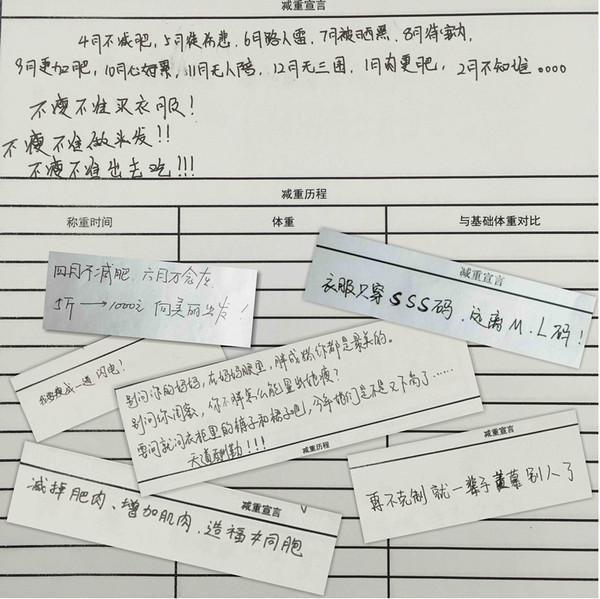 减重宣言
4月不减肥，5月徒伤悲，6月路人雷，7月被晒黑，8月待室内，
9月更加肥，10月心如累，11月无人陪，12月无三围，1月肉更肥，2月不知谁。。。。
不瘦不准买衣服！
不瘦不准做头发！！
不瘦不准出去吃！！！
减重历程
称重时间 体重 与基础体重对比
四月不减肥，六月万念灰
5斤→1000元 向美丽出发！
减重宣言
衣服只穿SSS码，远离M、L码！
我要瘦成一道闪电！
别问你的妈妈，在妈妈眼里，胖成 你都是最美的。
别问你闺蜜，你不胖怎么能显出他瘦？
要问就问衣柜里的裤子和裙子吧！今年他们是不是又下岗了……
天道酬勤！！！
减重历程
减重宣言
再不克制就一辈子 别人了
减重宣言
减掉肥肉、增加肌肉，造福 同胞